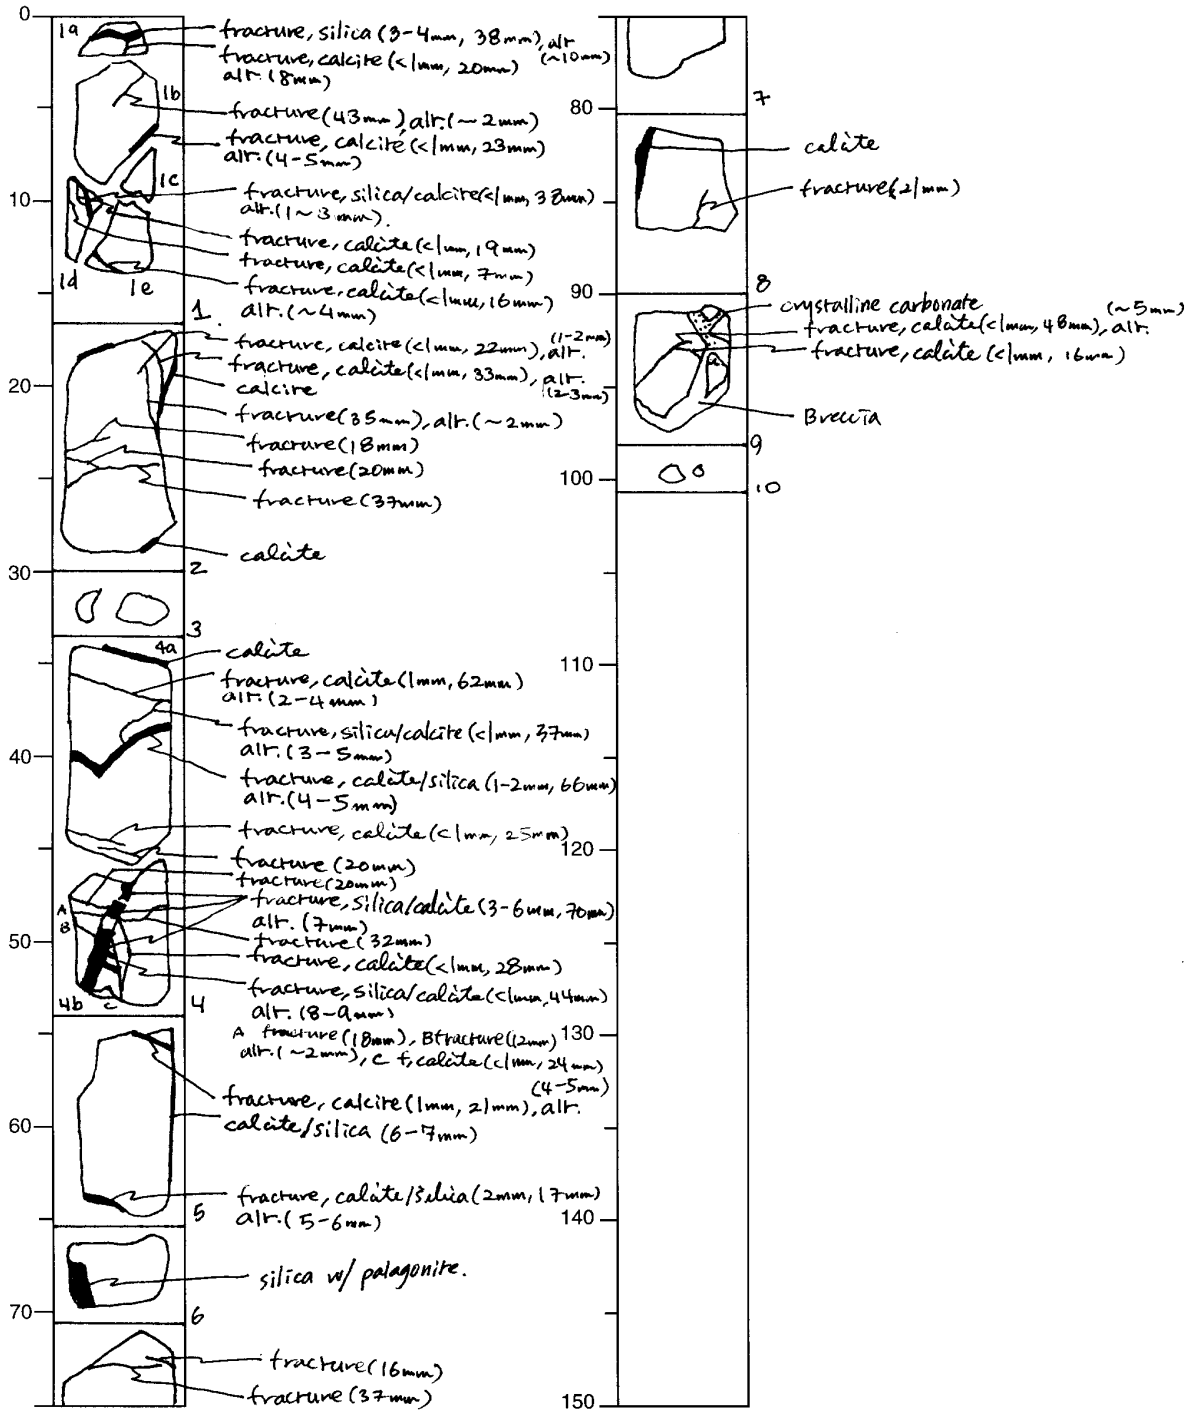 0
1a
fracture, silica (3-4mm, 38mm), alt
(~10mm)
fracture, calcite (<1mm, 20mm)
alt. (8mm)
1b
fracture (43mm), alt. (~2mm)
fracture, calcite (<1mm, 23mm)
alt. (4-5mm)
1c
10
fracture, silica/calcite (<1mm, 38mm)
alt. (1~3mm).
fracture, calcite (<1mm, 19mm)
fracture, calcite (<1mm, 7mm)
1d
1e
fracture, calcite (<1mm, 16mm)
alt. (~4mm)
1
(1-2mm)
fracture, calcite (<1mm, 22mm), alt.
fracture, calcite (<1mm, 33mm), alt.
(2-3mm)
20
calcite
fracture (35mm), alt. (~2mm)
fracture (18mm)
fracture (20mm)
fracture (37mm)
calcite
2
30
3
4a
calcite
fracture, calcite (1mm, 62mm)
alt. (2-4mm)
fracture, silica/calcite (<1mm, 37mm)
alt. (3-5mm)
40
fracture, calcite/silica (1-2mm, 66mm)
alt. (4-5mm)
fracture, calcite (<1mm, 25mm)
fracture (20mm)
fracture (20mm)
fracture, silica/calcite (3-6mm, 70mm)
alt. (7mm)
A
B
fracture (32mm)
50
fracture, calcite (<1mm, 28mm)
fracture, silica/calcite (<1mm, 44mm)
alt. (8-9mm)
4b
C
4
A fracture (18mm), B fracture (12mm)
alt. (~2mm), C f, calcite (<1mm, 24mm)
(4-5mm)
fracture, calcite (1mm, 21mm), alt.
60
calcite/silica (6-7mm)
fracture, calcite/silica (2mm, 17mm)
alt. (5-6mm)
5
silica w/ palagonite.
70
6
fracture (16mm)
fracture (37mm)
7
80
calcite
fracture (21mm)
8
90
crystalline carbonate
(~5mm)
fracture, calcite (<1mm, 48mm), alt.
fracture, calcite (<1mm, 16mm)
Breccia
9
100
10
110
120
130
140
150